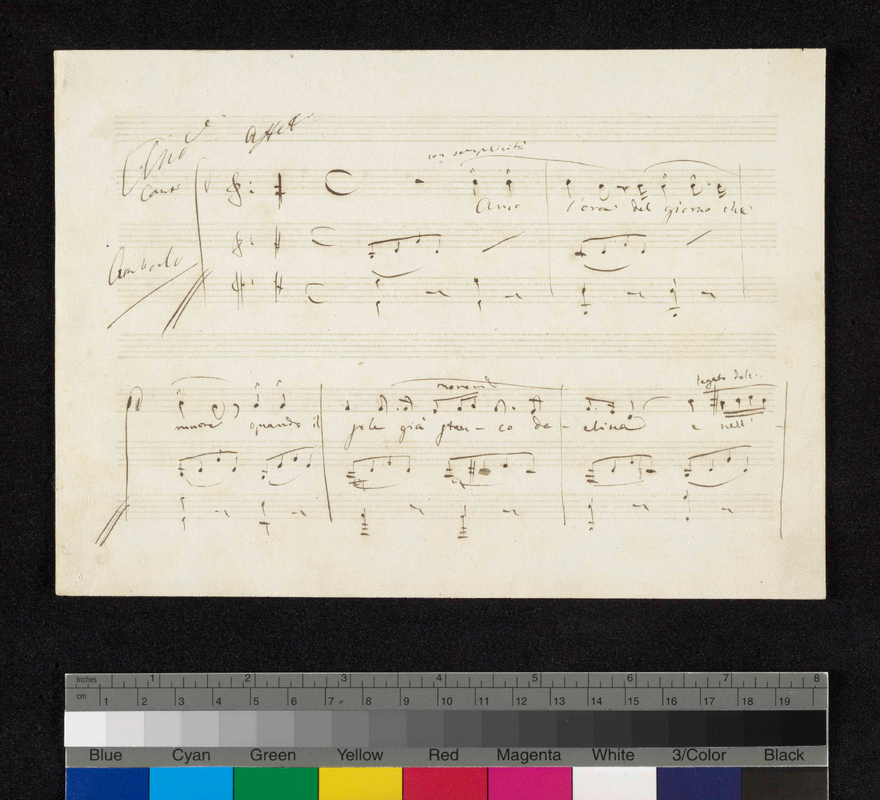 And.e affett.
con semplicità
Canto
Amo l'ora del giorno che
muore quando il sole già stan-co de-clina e nell'
legato dolc.
inches 1 2 3 4 5 6 7 8
cm 1 2 3 4 5 6 7 8 9 10 11 12 13 14 15 16 17 18 19
Blue Cyan Green Yellow Red Magenta White 3/Color Black